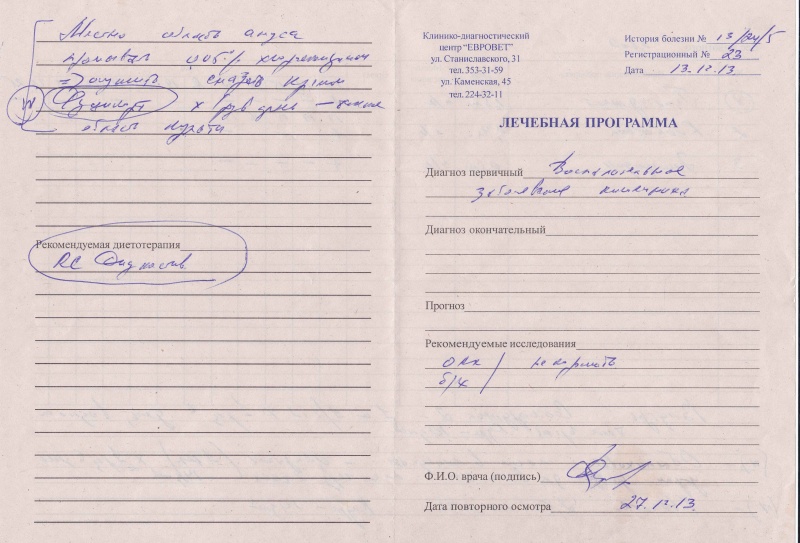 Местно область ануса
промывать хлоргексидином
=> осушить смазать кремом
х 2 р/в день
область
Рекомендуемая диетотерапия
RC
Клинико-диагностический
центр "ЕВРОВЕТ"
ул. Станиславского, 31
тел. 353-31-59
ул. Каменская, 45
тел. 224-32-11
История болезни №
Регистрационный № 23
Дата 13.12.13
ЛЕЧЕБНАЯ ПРОГРАММА
Диагноз первичный Воспалительное
заболевание кишечника
Диагноз окончательный
Прогноз
Рекомендуемые исследования
ОАК / не кормить
б/х /
Ф.И.О. врача (подпись)
Дата повторного осмотра 27.12.13.